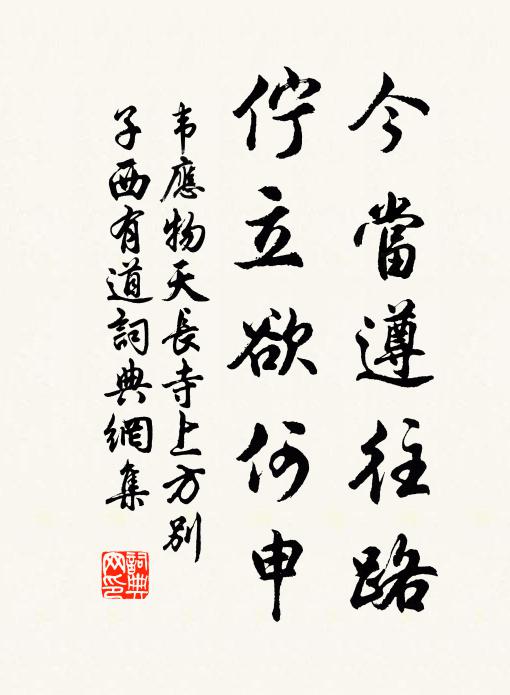 今當遵往路
佇立欲何申
韦應物天長寺上方別
子西有道詞典網集
詞典
网印